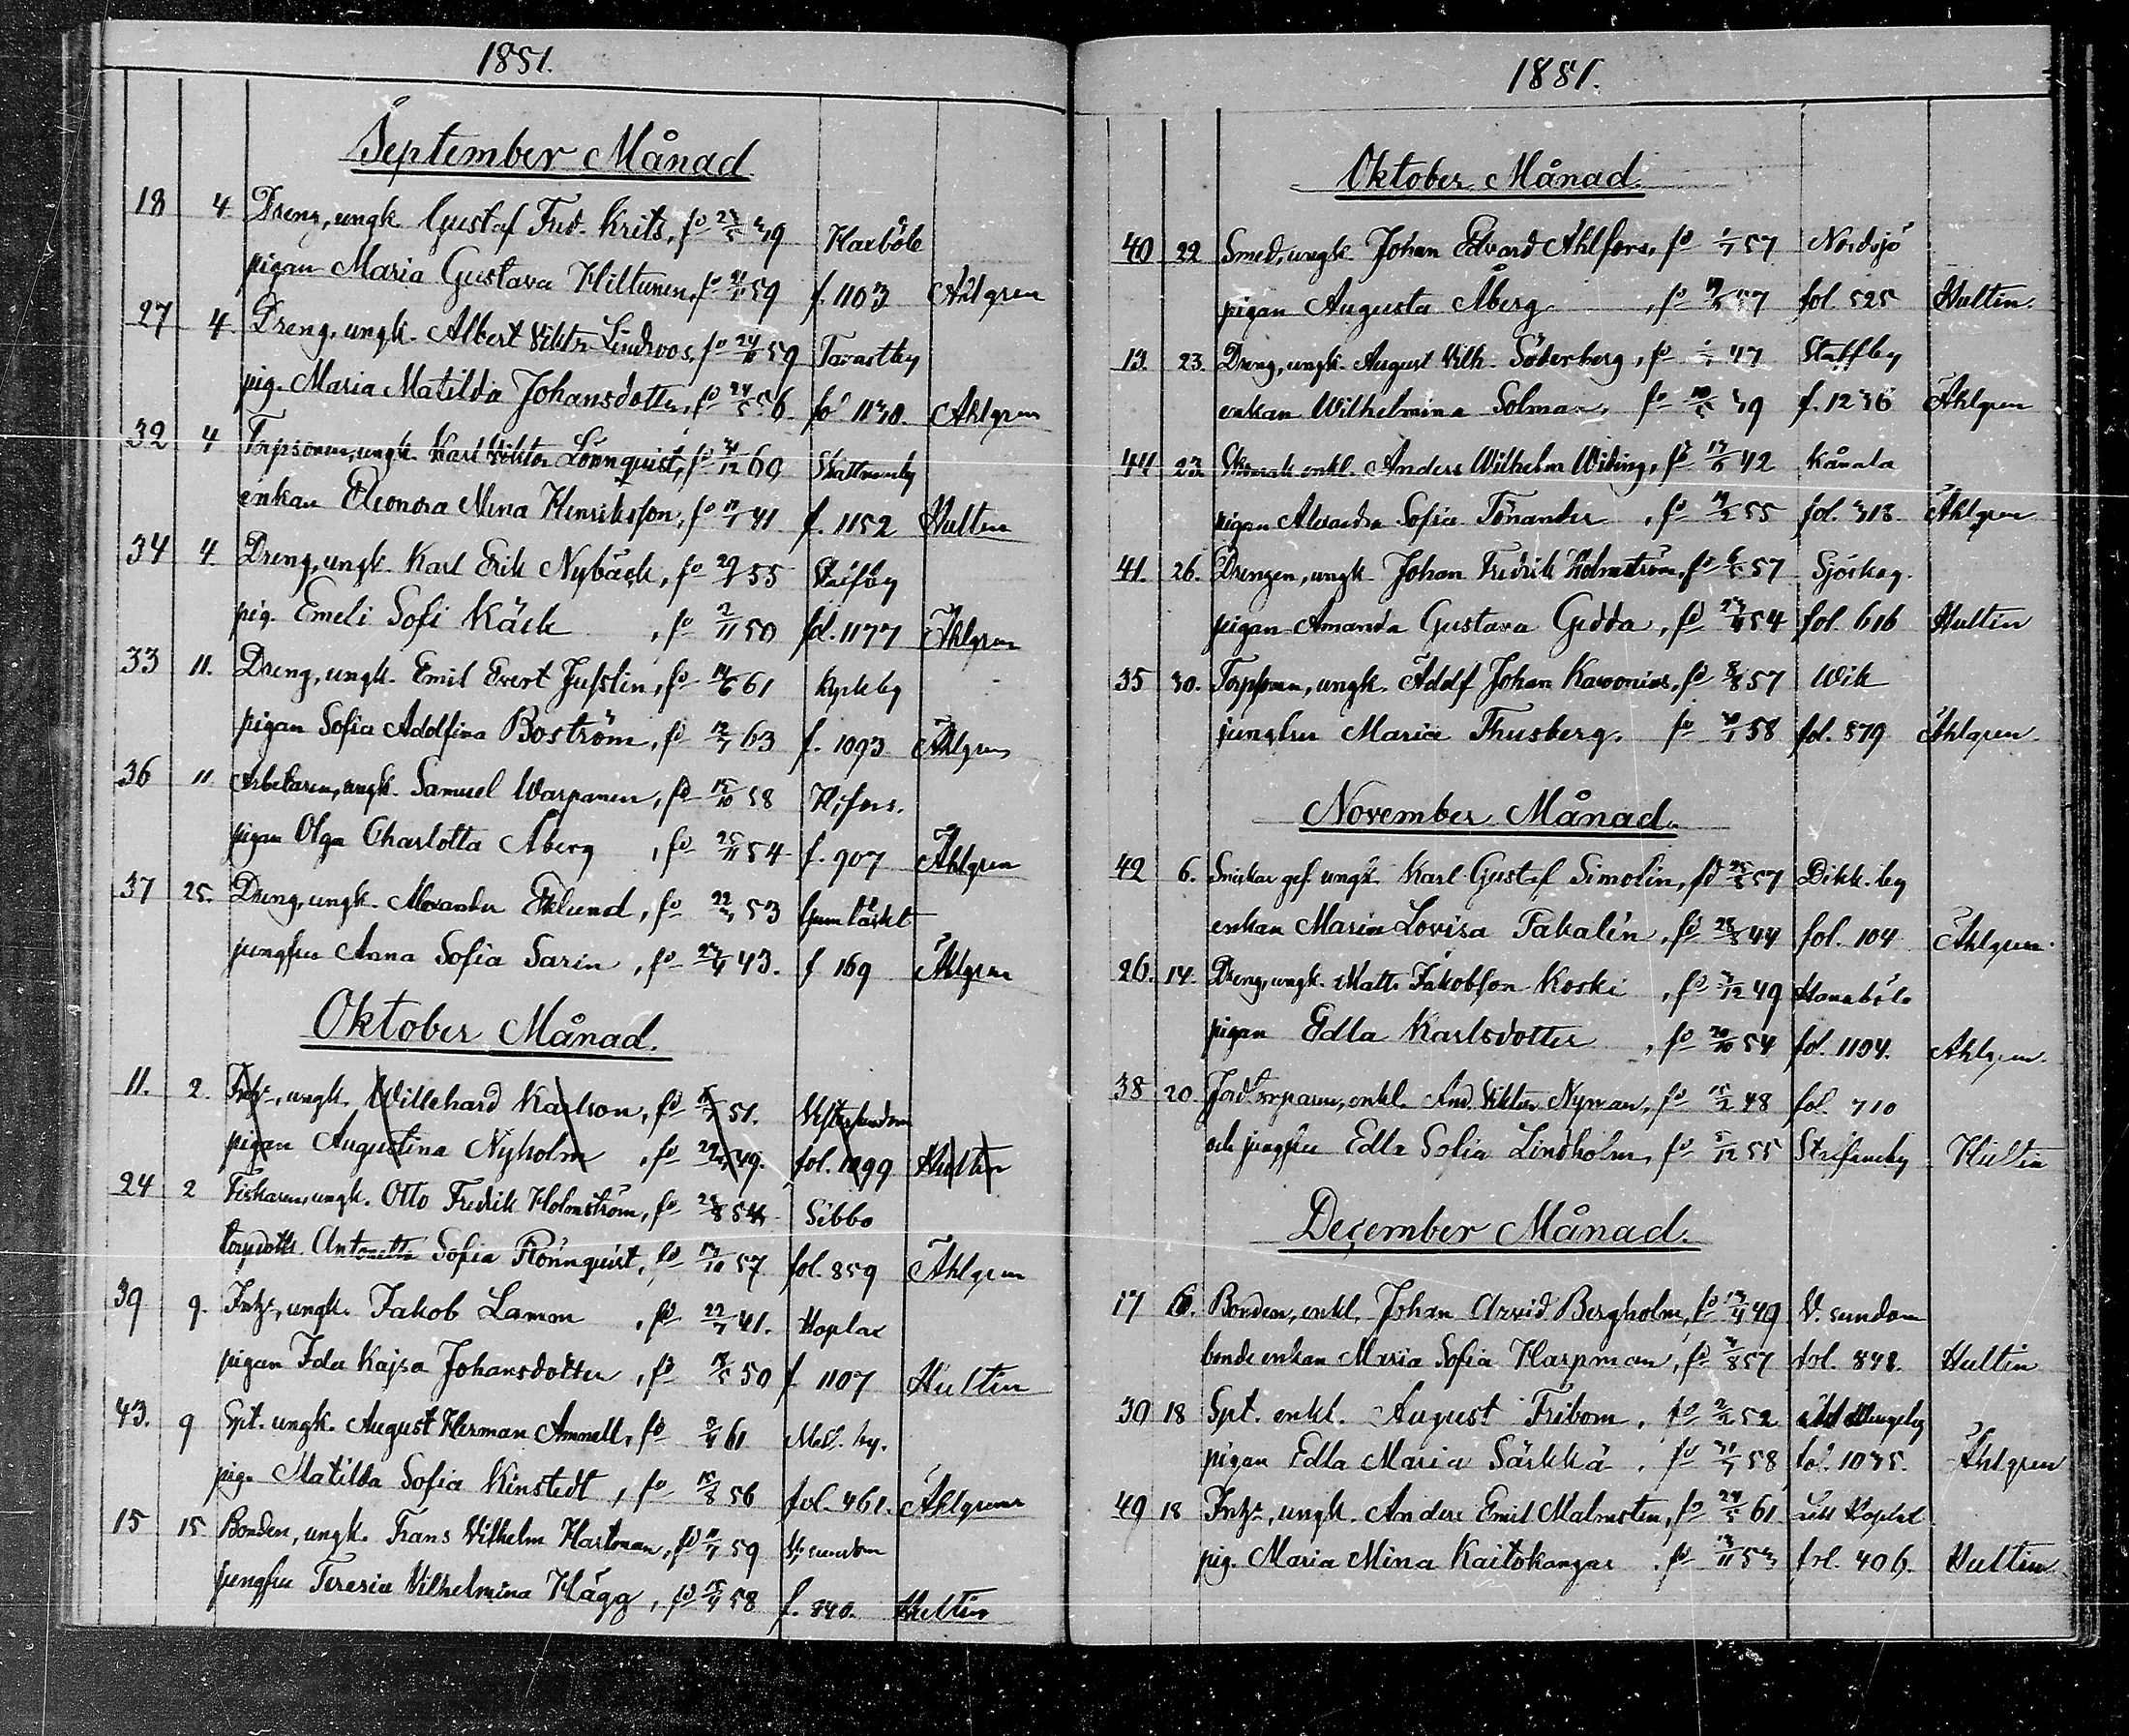 1881.
September Månad
18 4. Dreng, ungk. Gustaf Fred. Krits, fö 5 39 Haxböle
pigan Maria Gustava Hiltunen, fö 59 f. 1103 Ahlgren
27 4 Dreng, ungk. Albert Viktor Lindroos, fö 24/11 59 Tavastby
pig. Maria Matilda Johansdotter, fö 24/5 56. fo 1130. Ahlgren
32 4 Torpsonen, ungk. Karl Viktor Lönnquist, fö 31/12 60
enkan Eleonora Mina Henriksson, fö 41 f. 1152 Hultin
34 4. Dreng, ungk. Karl Erik Nybäck, fö 55
pig. Emeli Sofi Käck, fö 2/11 50 fol. 1177 Åhlgren
33 11. Dreng, ungk. Emil Evert Jusslin, fö 14/6 61 Kyrkby
pigan Sofia Adolfina Boström, fö 12/7 63 f. 1093 Åhlgren
36 11. Arbetaren, ungk. Samuel Warpanen, fö 15/10 58 H,fors.
pigan Olga Charlotta Åberg, fö 25/11 54 f. 907 Åhlgren
37 25. Dreng, ungk. Alexander Eklund, fö 22/3 53 Gumtäckt
jungfru Anna Sofia Sarin, fö 23/4 43. f 169 Åhlgren
Oktober Månad.
11. 2. Inhs, ungk. Willehard Karlson, fö 51. Vestersundom
pigan Augustina Nyholm, fö 49. fol. 1099 Hultin
24 2 Fiskaren, ungk. Otto Fredrik Holmström, fö 54 Sibbo
torpdottr. Antonetta Sofia Rönnquist, fö 13/10 57 fol. 859 Åhlgren
39 9. Inhs, ungk. Jakob Lamm, fö 22/7 41. Hoplax
pigan Ida Kajsa Johansdotter, fö 18/5 50 f 1107 Hultin
43. 9 Spt. ungk. August Herman Amnell, fö 61 Mell. by.
pig. Matilda Sofia Kinstedt, fö 15/8 56 fol. 461. Åhlgren
15 15 Bonden, ungk. Frans Vilhelm Hartman, fö 59 V. sundom
jungfru Teresia Vilhelmina Hägg, fö 15/4 58 f. 840. Hultin
1881.
Oktober Månad.
40 22 Smed, ungk. Johan Edvard Ahlfors, fö 1/7 57 Nordsjö
pigan Augusta Åberg, fö 57 fol. 525 Hultin.
13. 23. Dreng, ungk. August Vilh. Söderberg, fö 47 Staffby
enkan Wilhelmina Solman, fö 10/5 39 f. 1236 Åhlgren
44 23. enkl. Anders Wilhelm Widing, fö 17/6 42 Kånala
pigan Alexandra Sofia Tönander, fö 19/2 55 fol. 318. Åhlgren
41. 26. Drengen, ungk. Johan Fredrik Holmström, fö 57 Sjöskog.
pigan Amanda Gustava Gedda, fö 54 fol. 616 Hultin
35 30. Torpsonen, ungk. Adolf Johan Karvonius, fö 8/8 57 Wik
jungfru Maria Thusberg. fö 58 fol. 879 Åhlgren.
November Månad.
42 6. Snickar gef. ungk. Karl Gustaf Simolin, fö 57 Dikk. by
enkan Maria Lovisa Pakalén, fö 28/8 44 fol. 104 Åhlgren.
26. 14. Dreng, ungk. Matts Jakobsson Koski, fö 3/12 49 Hanaböle
pigan Edla Karlsdotter, fö 20/10 54 fol. 1104. Ahlgren.
38 20. Jordtorparen, enkl. And. Viktor Nyman, fö 15/2 48 fol. 710
och jungfru Edla Sofia Lindholm, fö 5/12 55 Hultin
December Månad.
17 6. Bonden, enkl, Johan Arvid Bergholm, fö 49 V. sundom
bonde enkan Maria Sofia Harpman, fö 3/8 57 fol. 848. Hultin
30 18 Spt. enkl. August Fribom, fö 2/2 52
pigan Edla Maria Särkkä, fö 58 fol. 1035. Åhlgren
49 18 Inhs, ungk. Anders Emil Malmsten, fö 24/5 61 Lill Hoplax
pig. Maria Mina Kaitokangas, fö 13/11 53 fol. 406. Hultin